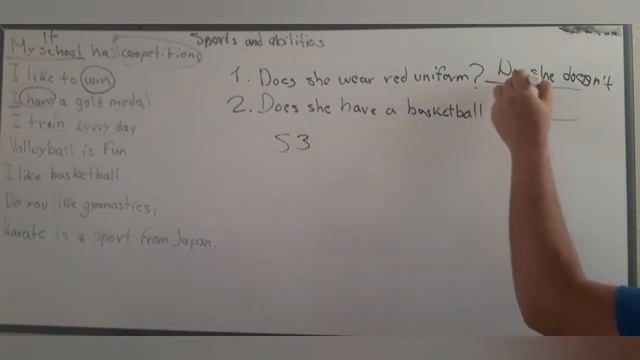 Sports and abilities
It
My school has competitions
I like to win
I have a gold medal
I train every day
Volleyball is fun
I like basketball
Do you like gymnastics,
Karate is a sport from Japan.
1. Does she wear red uniform? No she doesn't
2. Does she have a basketball
S3